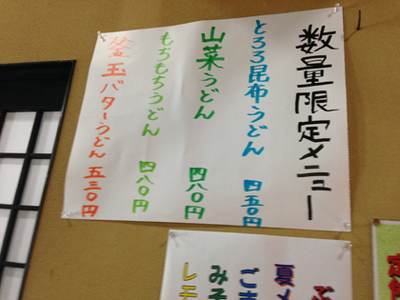 数量限定メニュー
とろろ昆布うどん 四五〇円
山菜うどん 四八〇円
もちもちうどん 四八〇円
釜玉バターうどん 五三〇円
夏メ
ご
みそ
レモ
定